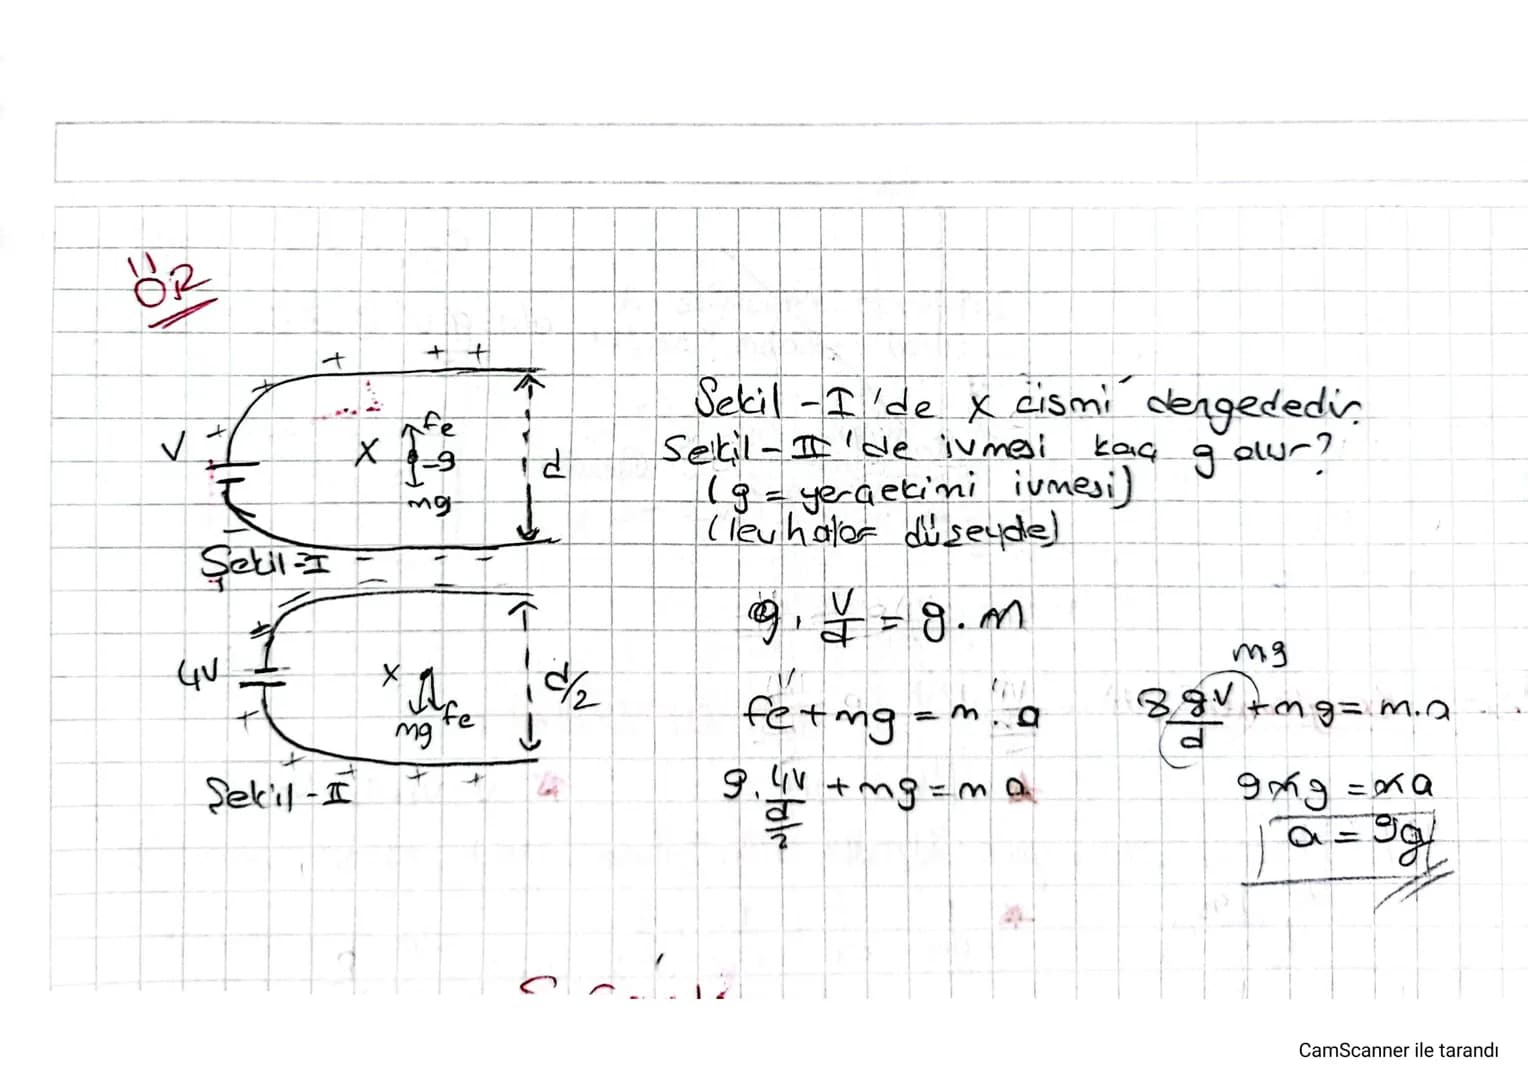 ÖR
+ + +
+
V +
X fe
-q
mg
d
-
Şekil-I - - -
Şekil-I'de X cismi dengededir.
Şekil-II'de ivmesi kaç g olur?
(g = yerçekimi ivmesi)
(levhalar düşeyde)
- -
4V
+
X
mg fe
d/2
+ + + +
Şekil-II
q . V/d = g . m
fe + mg = m . a
q . 4V/(d/2) + mg = m a
mg
8 qV/d + mg = m.a
9mg = ma
a = 9g
CamScanner ile tarandı